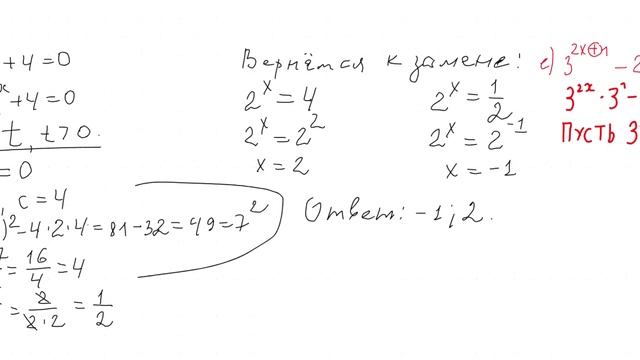 +4=0
x
+4=0
t, t>0.
=0
c=4
)²-4·2·4=81-32=49=7²
7
=16/4=4
=2/2·2=1/2
Вернётся к замене:
2^x=4
2^x=2²
x=2
2^x=1/2
2^x=2^-1
x=-1
Ответ: -1; 2.
c) 3^2x+1 -2
3^2x·3^1-
Пусть 3